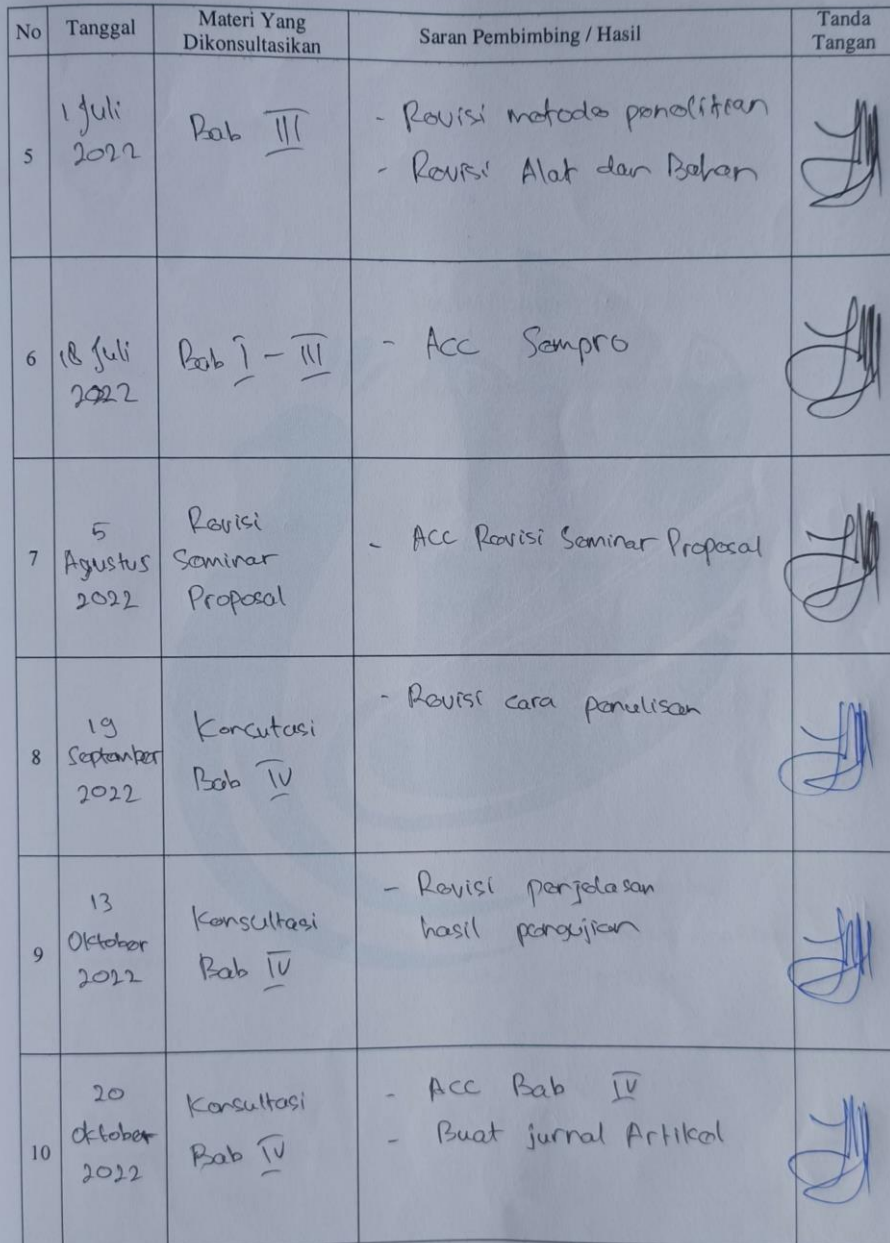 No Tanggal Materi Yang Dikonsultasikan Saran Pembimbing / Hasil Tanda Tangan
5
1 Juli
2022
Bab III
- Revisi metode penelitian
- Revisi Alat dan Bahan
6
18 Juli
2022
Bab I - III
- Acc Sempro
7
5
Agustus
2022
Revisi
Seminar
Proposal
- Acc Revisi Seminar Proposal
8
19
September
2022
Koncutasi
Bab IV
- Revisi cara penulisan
9
13
Oktober
2022
Konsultasi
Bab IV
- Revisi penjelasan
hasil pengujian
10
20
Oktober
2022
Konsultasi
Bab IV
- Acc Bab IV
- Buat jurnal Artikel